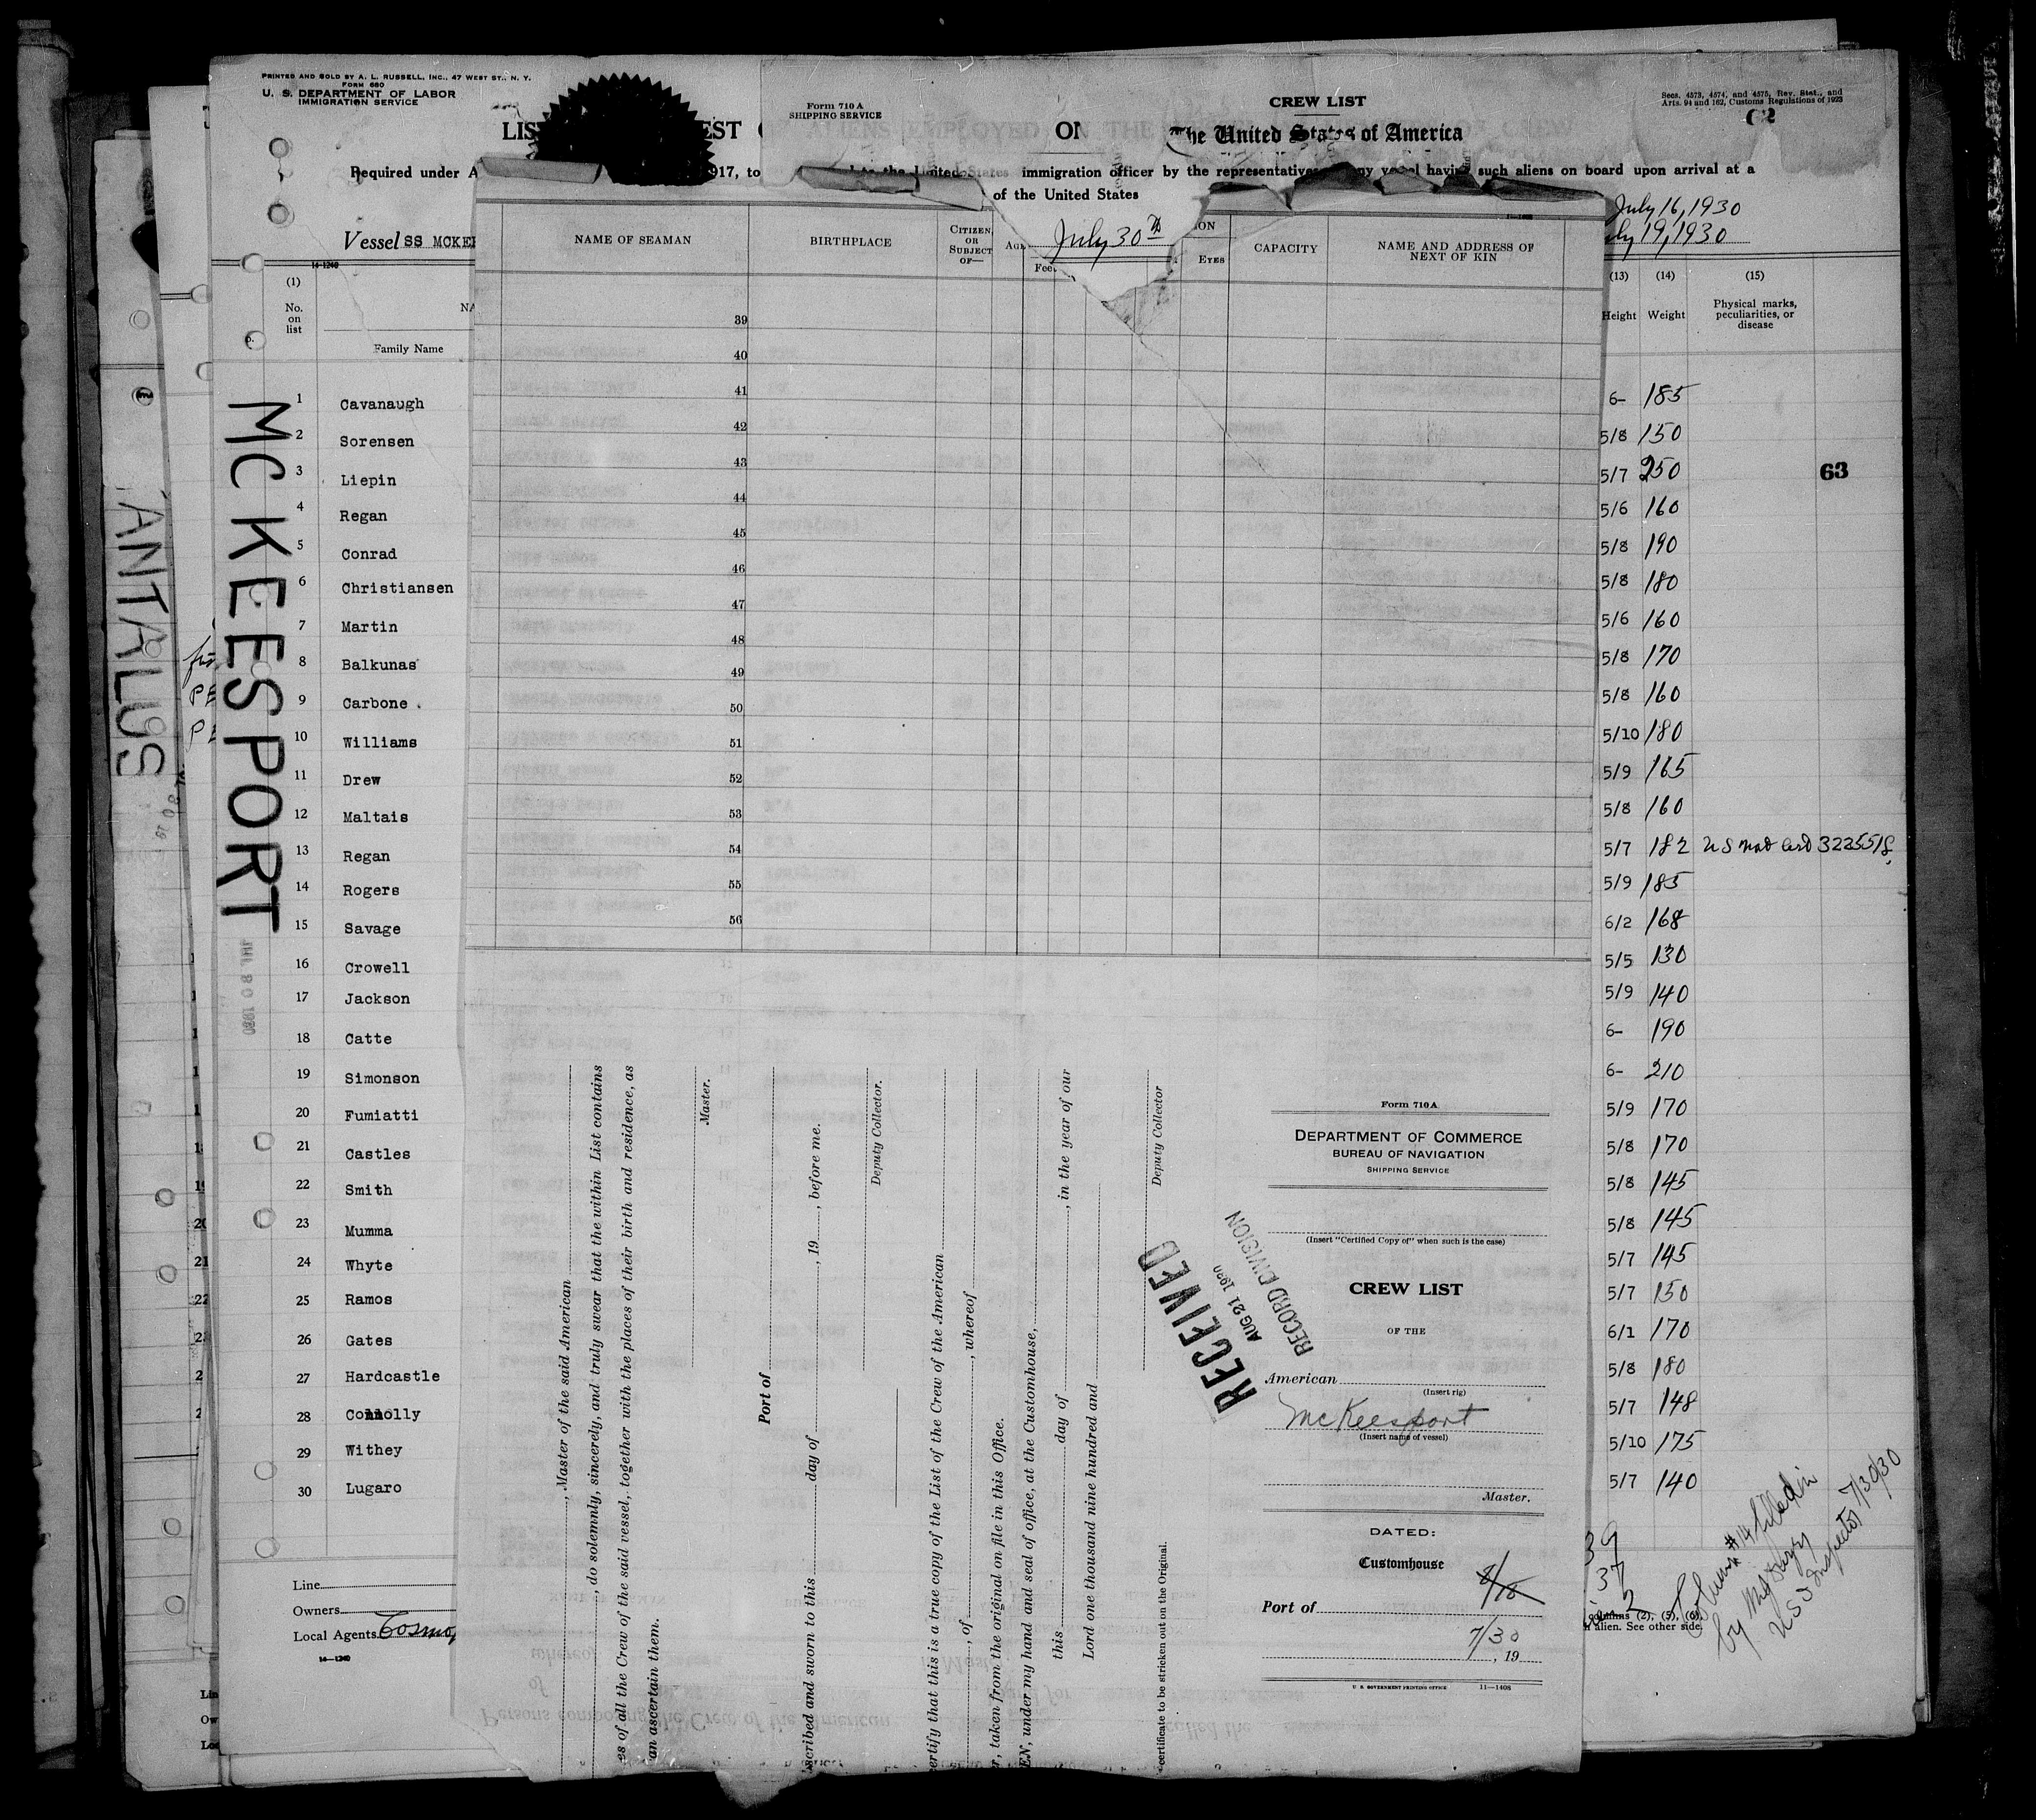 PRINTED AND SOLD BY A. L. RUSSELL, INC., 47 WEST ST., N. Y.
FORM 680
U. S. DEPARTMENT OF LABOR
IMMIGRATION SERVICE
Form 710 A
SHIPPING SERVICE
CREW LIST
Secs. 4573, 4574, and 4575, Rev. Stat., and
Arts. 94 and 162, Customs Regulations of 1923
62
ALIENS EMPLOYED ON THE
The United States of America
Required under A
917, to
immigration officer by the representative
such aliens on board upon arrival at a
of the United States
July 16, 1930
Vessel SS MCKEE
July 30th
19, 1930
NAME OF SEAMAN
BIRTHPLACE
CITIZEN, OR SUBJECT OF—
AGE
Feet
EYES
CAPACITY
NAME AND ADDRESS OF NEXT OF KIN
14-1240
(1)
No. on list
Family Name
(13)
Height
(14)
Weight
(15)
Physical marks, peculiarities, or disease
39
40
41
42
43
44
45
46
47
48
49
50
51
52
53
54
55
56
1 Cavanaugh 6- 185
2 Sorensen 5/8 150
3 Liepin 5/7 250
63
4 Regan 5/6 160
5 Conrad 5/8 190
6 Christiansen 5/8 180
7 Martin 5/6 160
8 Balkunas 5/8 170
9 Carbone 5/8 160
10 Williams 5/10 180
11 Drew 5/9 165
12 Maltais 5/8 160
13 Regan 5/7 182 U S Nat Cert 3225518
14 Rogers 5/9 185
15 Savage 6/2 168
16 Crowell 5/5 130
17 Jackson 5/9 140
18 Catte 6- 190
19 Simonson 6- 210
20 Fumiatti 5/9 170
21 Castles 5/8 170
22 Smith 5/8 145
23 Mumma 5/8 145
24 Whyte 5/7 145
25 Ramos 5/7 150
26 Gates 6/1 170
27 Hardcastle 5/8 180
28 Connolly 5/7 148
29 Withey 5/10 175
30 Lugaro 5/7 140
MCKEESPORT
ANTALUS
Line
Owners
Local Agents Cosmop
14-1240
, Master of the said American
, do solemnly, sincerely, and truly swear that the within List contains
es of all the Crew of the said vessel, together with the places of their birth and residence, as
an ascertain them.
Master.
Port of
scribed and sworn to this day of , 19 , before me.
Deputy Collector.
ertify that this is a true copy of the List of the Crew of the American
, of , whereof
r, taken from the original on file in this Office.
EN, under my hand and seal of office, at the Customhouse,
this day of , in the year of our
Lord one thousand nine hundred and
Deputy Collector
certificate to be stricken out on the Original.
RECEIVED
AUG 21 1930
RECORD DIVISION
Form 710A
DEPARTMENT OF COMMERCE
BUREAU OF NAVIGATION
SHIPPING SERVICE
(Insert "Certified Copy of" when such is the case)
CREW LIST
OF THE
American
(Insert rig)
McKeesport
(Insert name of vessel)
Master.
DATED:
Customhouse
Port of
7/30
, 19
U. S. GOVERNMENT PRINTING OFFICE 11—1408
39
37
2
columns (2), (5), (6),
alien. See other side.
Column #14 filled in
by
U S Inspector 7/30/30